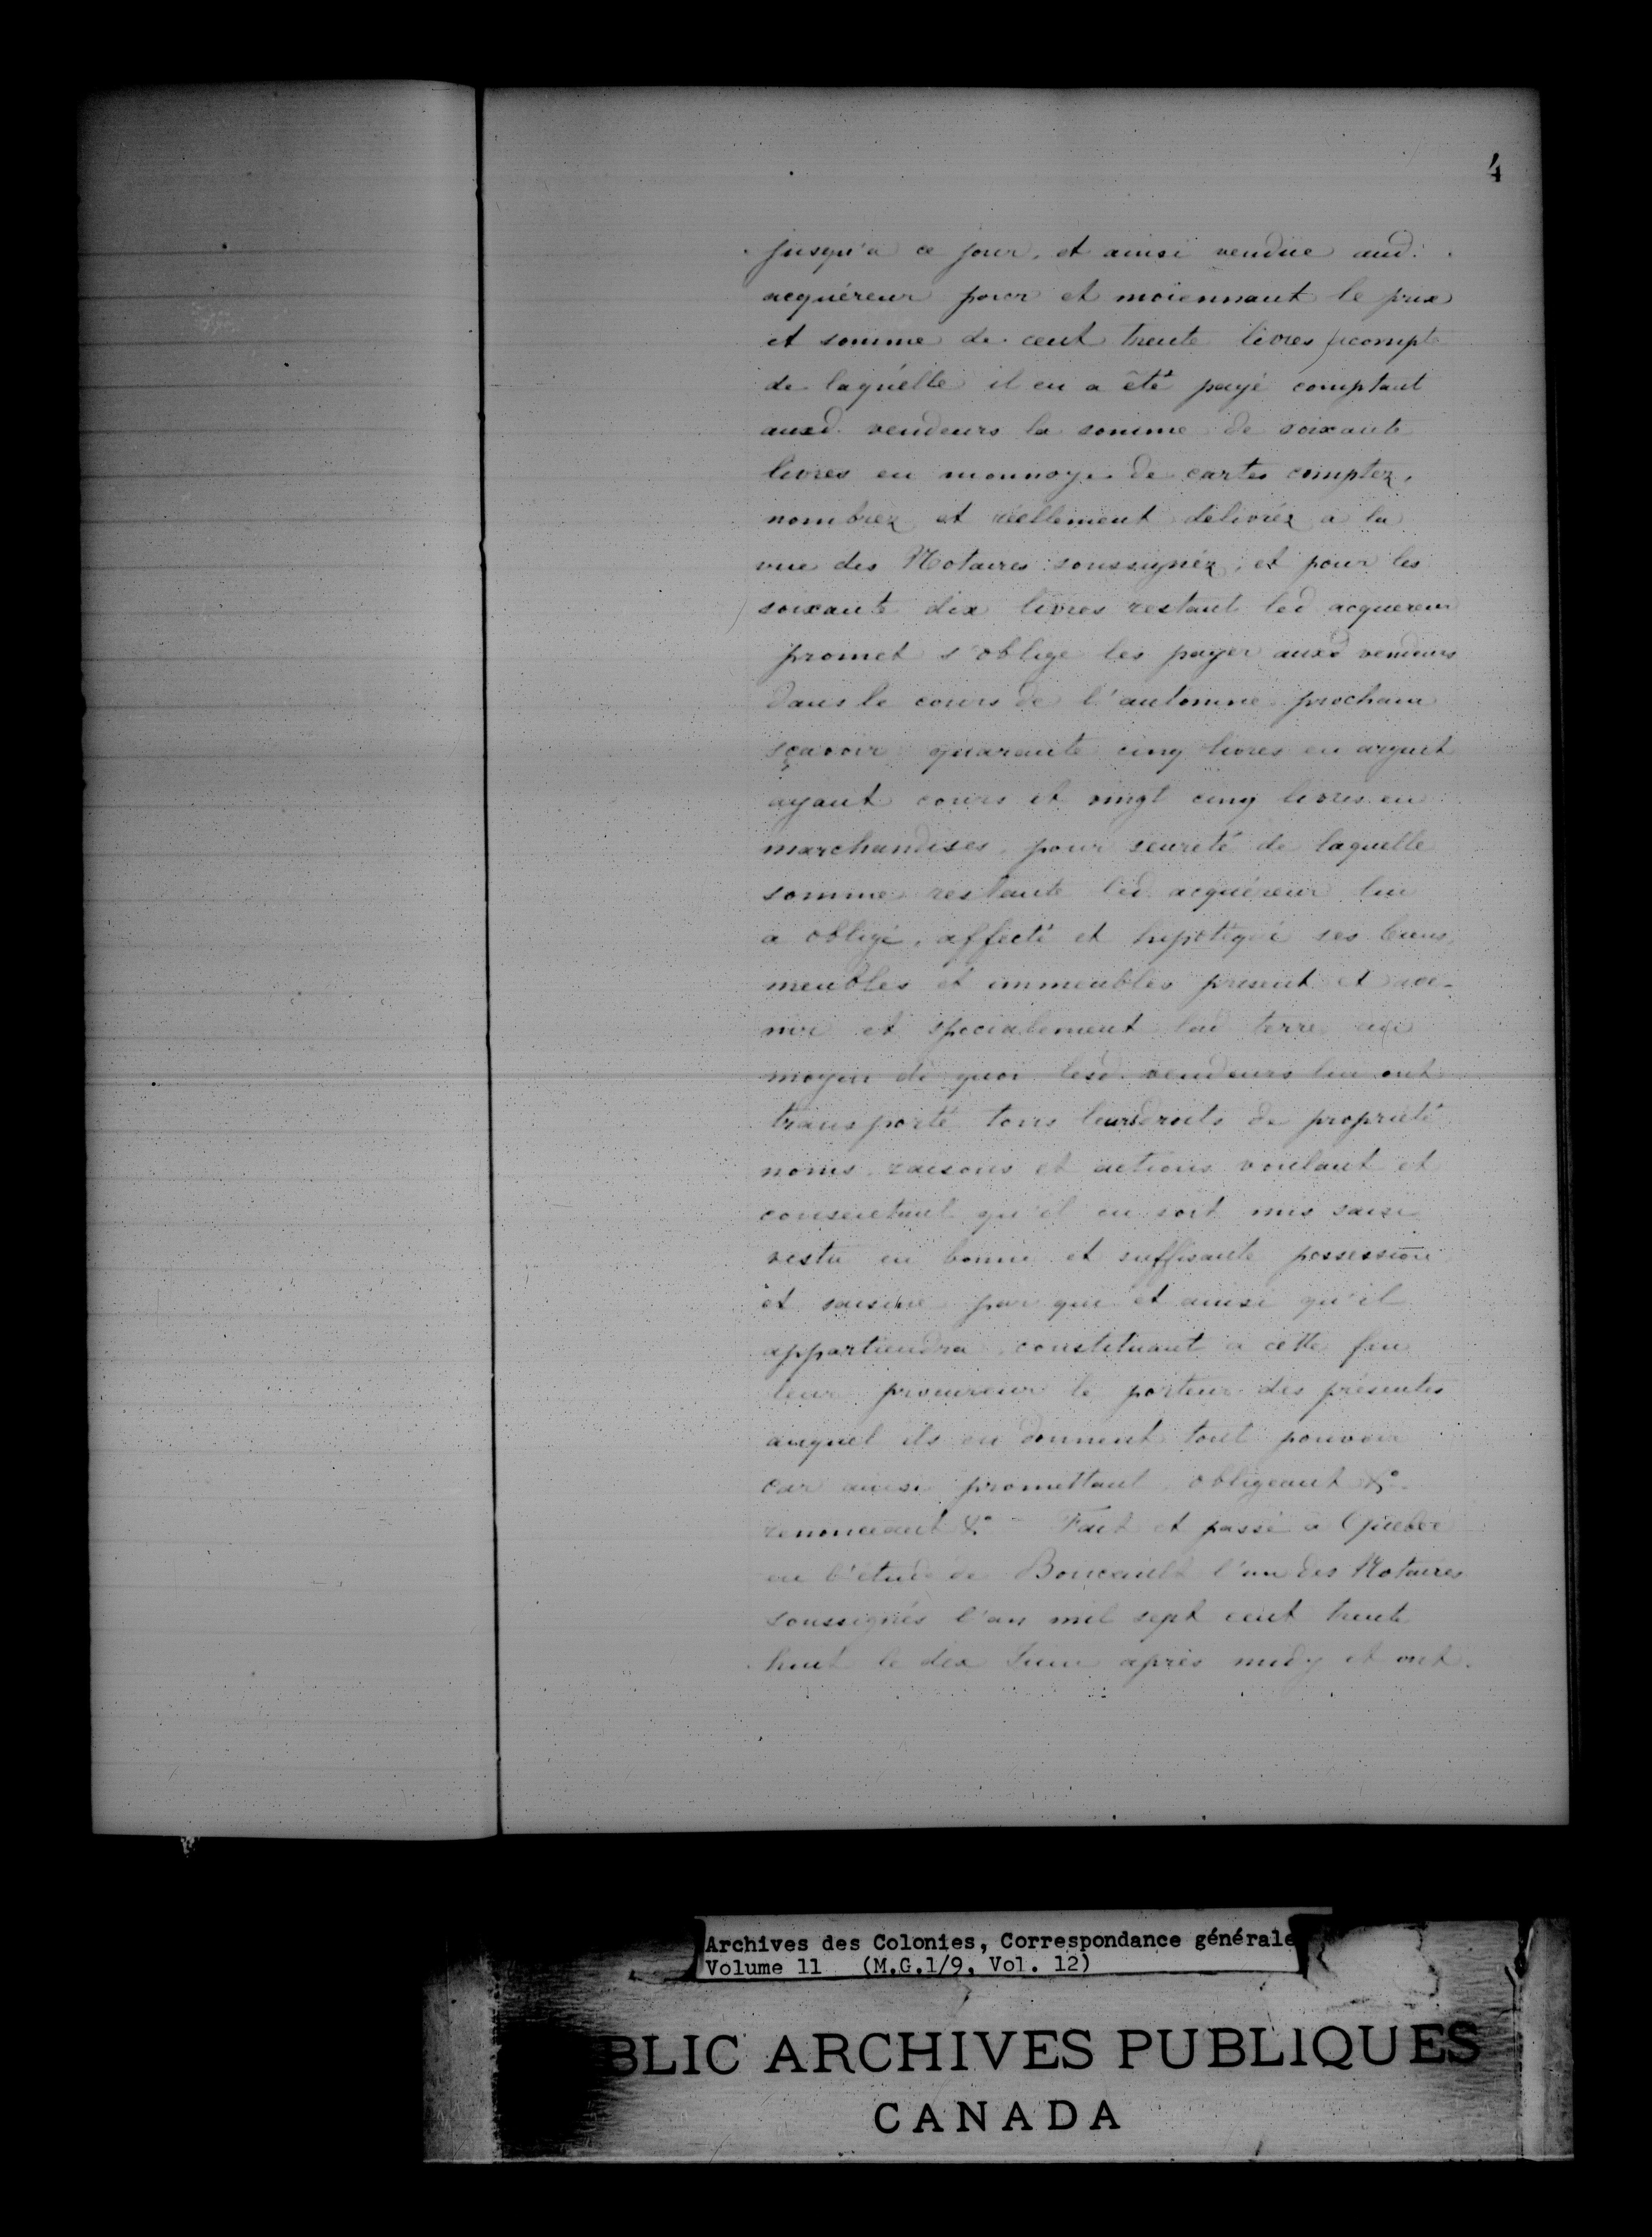 4
jusqu'a ce jour, et ainsi vendüe aud.
acquéreur pour et moiennant le prix
et somme de cent trente livres acompte
de laquelle il en a été payé comptant
auxd. vendeurs la somme de soixante
livres en monnoye de cartes comptez,
nombrez et réellement délivréz à la
vue des Notaires soussignéz, et pour les
soixante dix livres restant led acquereur
promet s'oblige les payer auxd vendeurs
dans le cours de l'automne prochain
sçavoir quarante cinq livres en argent
ayant cours et vingt cinq livres en
marchandises, pour seureté de laquelle
somme restante led. acquéreur lui
a obligé, affecté et hipotéqué ses biens,
meubles et immeubles present et ave-
nir et specialement lad terre au
moyen de quoi lesd. vendeurs lui ont
transporté tous leurs droits de propriété
noms, raisons et actions voulant et
consentant qu'il en soit mis saisi
vestu en bonne et suffisante possession
et saisine par qui et ainsi qu'il
appartiendra, constituant à cette fin
leur procureur le porteur des présentes
auquel ils en donnent tout pouvoir
car ainsi promettant, obligeant &°.
renonceant &° - Fait et passé a Quebec
en l'étude de Boucault l'un des Notaires
soussignés l'an mil sept cent trente
huit le dix Juin après midy et ont.
Archives des Colonies, Correspondance générale
Volume 11 (M.G.1/9, Vol. 12)
BLIC ARCHIVES PUBLIQUES
CANADA